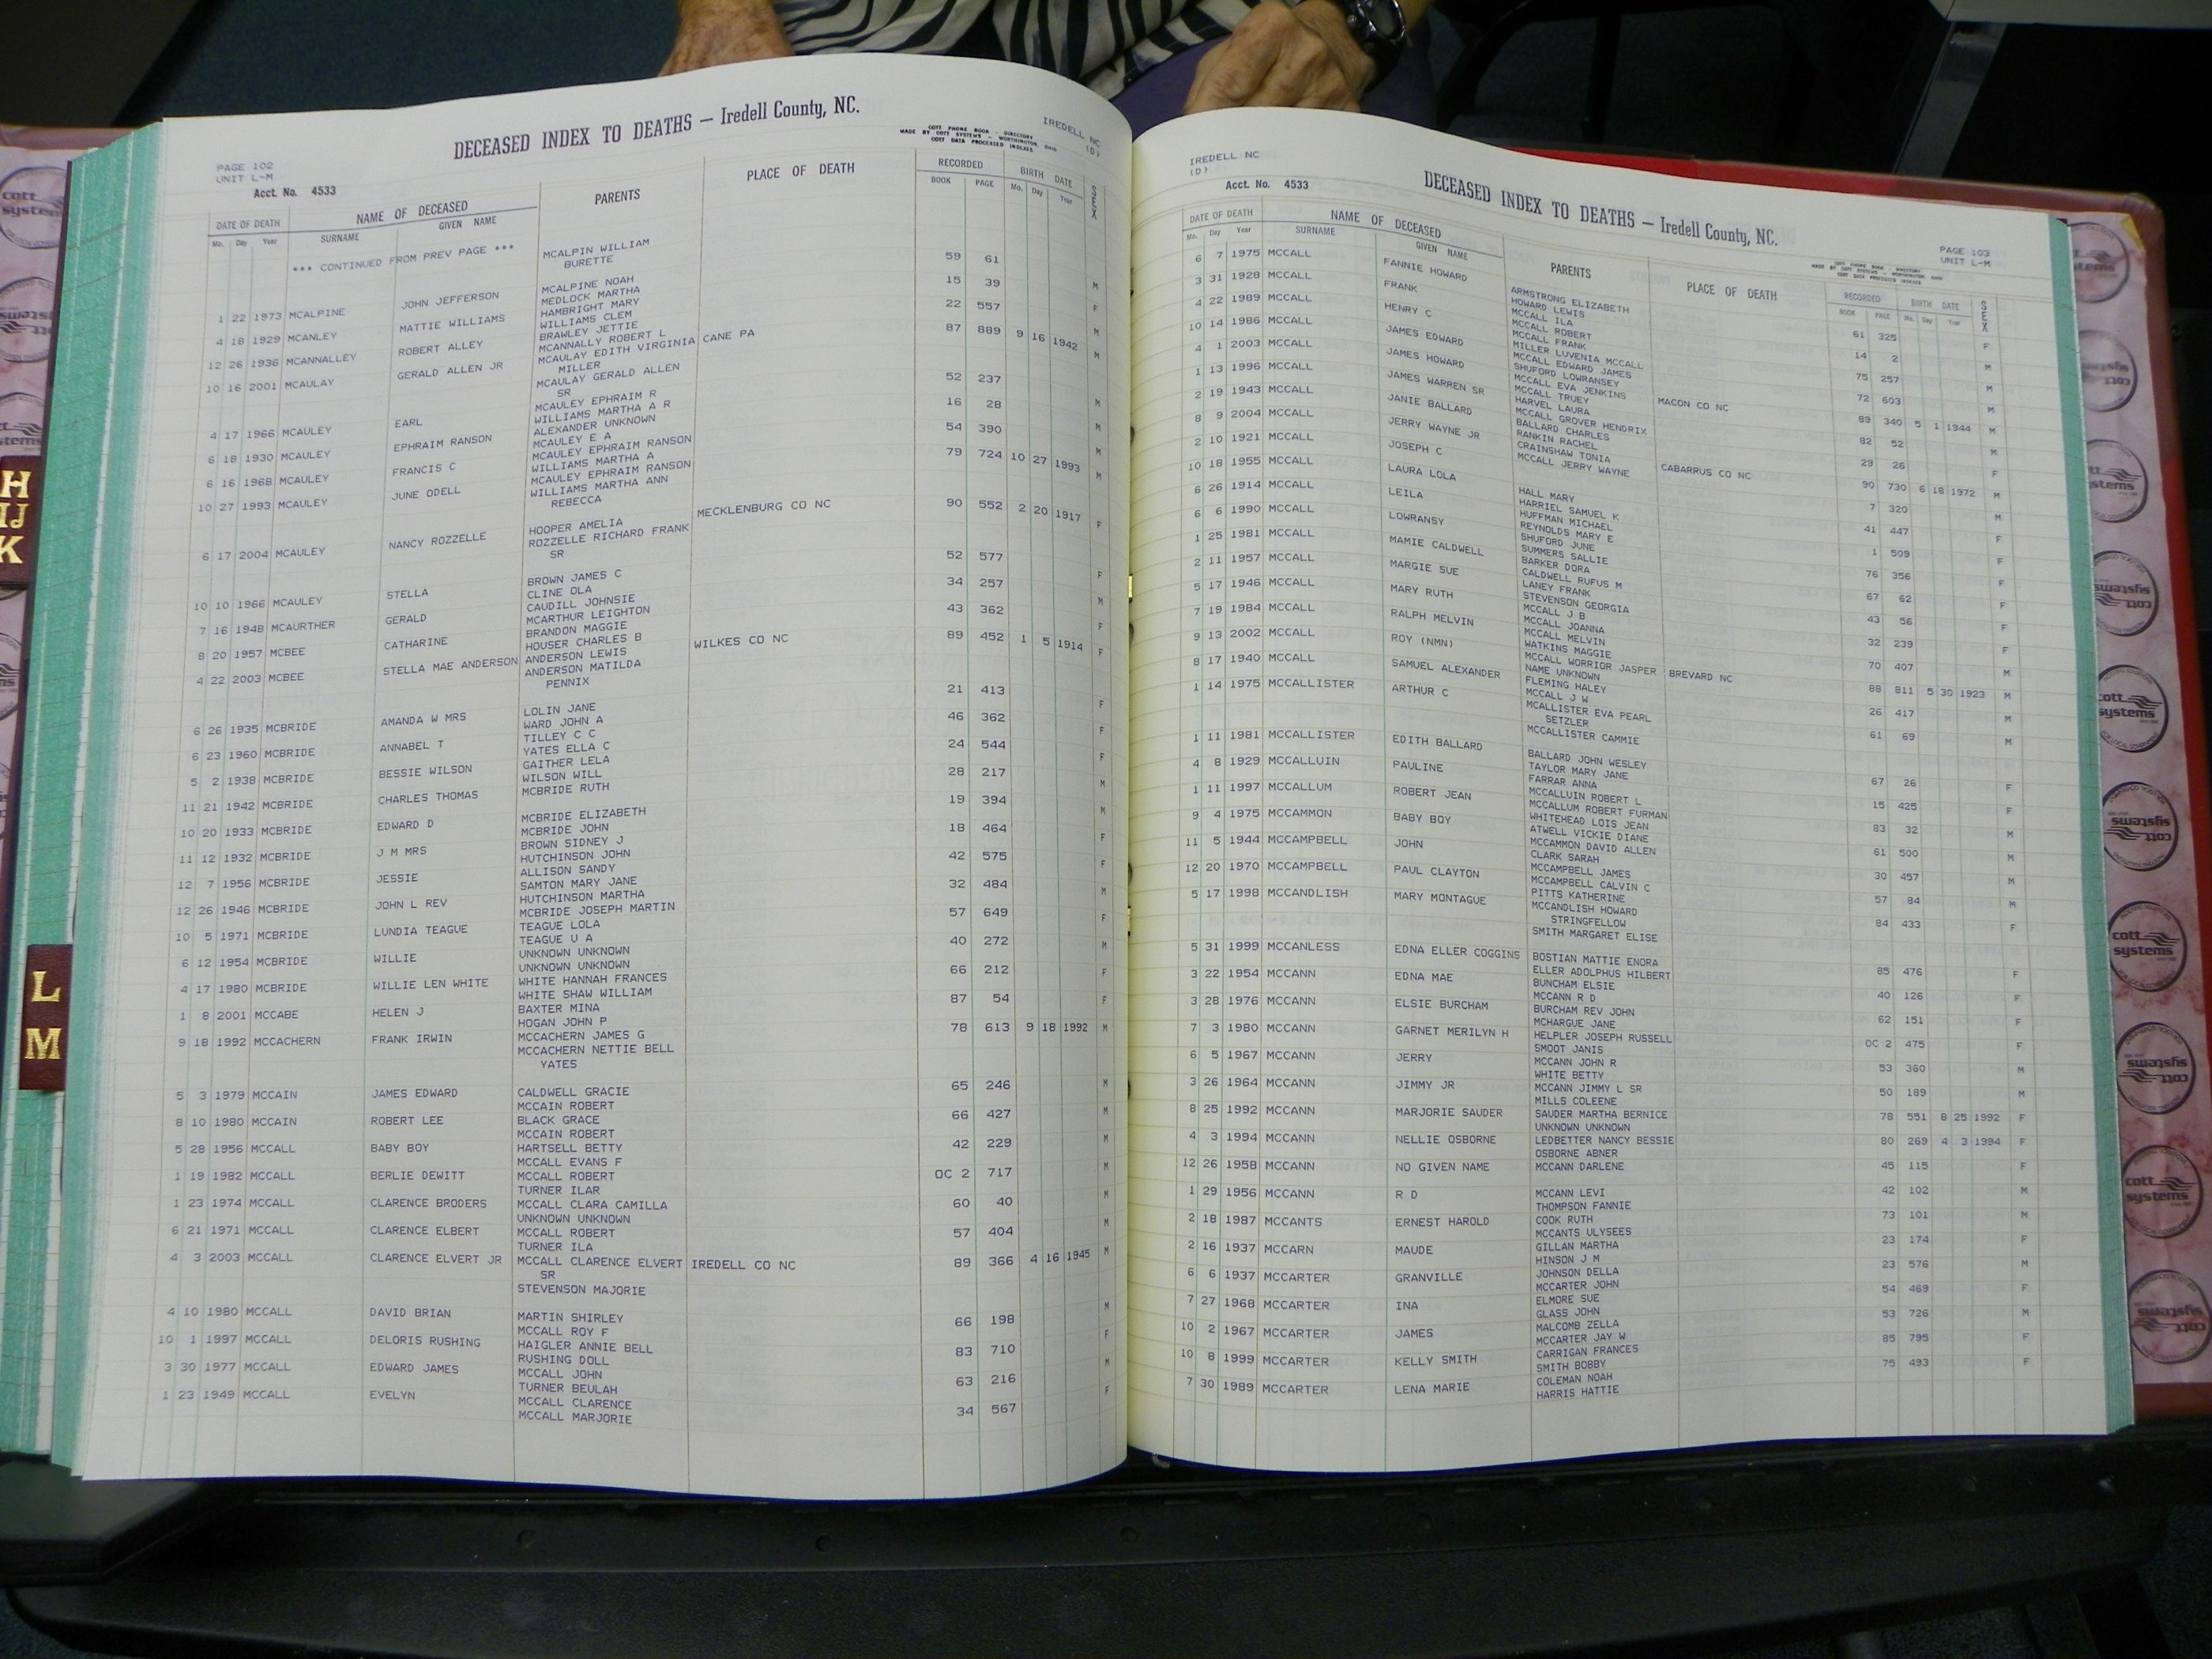 DECEASED INDEX TO DEATHS — Iredell County, NC.
IREDELL NC
(D)
COTT PHONE BOOK - DIRECTORY
MADE BY COTT SYSTEMS - WORTHINGTON, OHIO
COTT DATA PROCESSED INDEXES
PAGE 102
UNIT L-M
Acct. No. 4533
DATE OF DEATH NAME OF DECEASED PARENTS PLACE OF DEATH RECORDED BIRTH DATE SEX
Mo. Day Year SURNAME GIVEN NAME BOOK PAGE Mo. Day Year
*** CONTINUED FROM PREV PAGE *** MCALPIN WILLIAM
BURETTE
1 22 1973 MCALPINE JOHN JEFFERSON MCALPINE NOAH 59 61 M
MEDLOCK MARTHA
4 18 1929 MCANLEY MATTIE WILLIAMS HAMBRIGHT MARY 15 39 F
WILLIAMS CLEM
12 26 1936 MCANNALLEY ROBERT ALLEY BRAWLEY JETTIE 22 557 M
MCANNALLY ROBERT L
10 16 2001 MCAULAY GERALD ALLEN JR MCAULAY EDITH VIRGINIA CANE PA 87 889 9 16 1942 M
MILLER
MCAULAY GERALD ALLEN
SR
4 17 1966 MCAULEY EARL MCAULEY EPHRAIM R 52 237 M
WILLIAMS MARTHA A R
6 18 1930 MCAULEY EPHRAIM RANSON ALEXANDER UNKNOWN 16 28 M
MCAULEY E A
6 16 1968 MCAULEY FRANCIS C MCAULEY EPHRAIM RANSON 54 390 M
WILLIAMS MARTHA A
10 27 1993 MCAULEY JUNE ODELL MCAULEY EPHRAIM RANSON 79 724 10 27 1993 M
WILLIAMS MARTHA ANN
REBECCA
6 17 2004 MCAULEY NANCY ROZZELLE HOOPER AMELIA MECKLENBURG CO NC 90 552 2 20 1917 F
ROZZELLE RICHARD FRANK
SR
10 10 1966 MCAULEY STELLA BROWN JAMES C 52 577 F
CLINE OLA
7 16 1948 MCAURTHER GERALD CAUDILL JOHNSIE 34 257 M
MCARTHUR LEIGHTON
8 20 1957 MCBEE CATHARINE BRANDON MAGGIE 43 362 F
HOUSER CHARLES B
4 22 2003 MCBEE STELLA MAE ANDERSON ANDERSON LEWIS WILKES CO NC 89 452 1 5 1914 F
ANDERSON MATILDA
PENNIX
6 26 1935 MCBRIDE AMANDA W MRS LOLIN JANE 21 413 F
WARD JOHN A
6 23 1960 MCBRIDE ANNABEL T TILLEY C C 46 362 F
YATES ELLA C
5 2 1938 MCBRIDE BESSIE WILSON GAITHER LELA 24 544 F
WILSON WILL
11 21 1942 MCBRIDE CHARLES THOMAS MCBRIDE RUTH 28 217 M
10 20 1933 MCBRIDE EDWARD D MCBRIDE ELIZABETH 19 394 M
MCBRIDE JOHN
11 12 1932 MCBRIDE J M MRS BROWN SIDNEY J 18 464 F
HUTCHINSON JOHN
12 7 1956 MCBRIDE JESSIE ALLISON SANDY 42 575 F
SAMTON MARY JANE
12 26 1946 MCBRIDE JOHN L REV HUTCHINSON MARTHA 32 484 M
MCBRIDE JOSEPH MARTIN
10 5 1971 MCBRIDE LUNDIA TEAGUE TEAGUE LOLA 57 649 F
TEAGUE U A
6 12 1954 MCBRIDE WILLIE UNKNOWN UNKNOWN 40 272 M
UNKNOWN UNKNOWN
4 17 1980 MCBRIDE WILLIE LEN WHITE WHITE HANNAH FRANCES 66 212 F
WHITE SHAW WILLIAM
1 8 2001 MCCABE HELEN J BAXTER MINA 87 54 F
HOGAN JOHN P
9 18 1992 MCCACHERN FRANK IRWIN MCCACHERN JAMES G 78 613 9 18 1992 M
MCCACHERN NETTIE BELL
YATES
5 3 1979 MCCAIN JAMES EDWARD CALDWELL GRACIE 65 246 M
MCCAIN ROBERT
8 10 1980 MCCAIN ROBERT LEE BLACK GRACE 66 427 M
MCCAIN ROBERT
5 28 1956 MCCALL BABY BOY HARTSELL BETTY 42 229 M
MCCALL EVANS F
1 19 1982 MCCALL BERLIE DEWITT MCCALL ROBERT OC 2 717 M
TURNER ILAR
1 23 1974 MCCALL CLARENCE BRODERS MCCALL CLARA CAMILLA 60 40 M
UNKNOWN UNKNOWN
6 21 1971 MCCALL CLARENCE ELBERT MCCALL ROBERT 57 404 M
TURNER ILA
4 3 2003 MCCALL CLARENCE ELVERT JR MCCALL CLARENCE ELVERT IREDELL CO NC 89 366 4 16 1945 M
SR
STEVENSON MAJORIE
4 10 1980 MCCALL DAVID BRIAN MARTIN SHIRLEY 66 198 M
MCCALL ROY F
10 1 1997 MCCALL DELORIS RUSHING HAIGLER ANNIE BELL 83 710 F
RUSHING DOLL
3 30 1977 MCCALL EDWARD JAMES MCCALL JOHN 63 216 M
TURNER BEULAH
1 23 1949 MCCALL EVELYN MCCALL CLARENCE 34 567 F
MCCALL MARJORIE
IREDELL NC
(D)
Acct. No. 4533
DECEASED INDEX TO DEATHS — Iredell County, NC.
PAGE 103
UNIT L-M
COTT PHONE BOOK - DIRECTORY
MADE BY COTT SYSTEMS - WORTHINGTON, OHIO
COTT DATA PROCESSED INDEXES
DATE OF DEATH NAME OF DECEASED PARENTS PLACE OF DEATH RECORDED BIRTH DATE SEX
Mo. Day Year SURNAME GIVEN NAME BOOK PAGE Mo. Day Year
6 7 1975 MCCALL FANNIE HOWARD ARMSTRONG ELIZABETH 61 325 F
HOWARD LEWIS
3 31 1928 MCCALL FRANK MCCALL ILA 14 2 M
MCCALL ROBERT
4 22 1989 MCCALL HENRY C MCCALL FRANK 75 257 M
MILLER LUVENIA MCCALL
10 14 1986 MCCALL JAMES EDWARD MCCALL EDWARD JAMES 72 603 M
SHUFORD LOWRANSEY
4 1 2003 MCCALL JAMES HOWARD MCCALL EVA JENKINS MACON CO NC 89 340 5 1 1944 M
MCCALL TRUEY
1 13 1996 MCCALL JAMES WARREN SR HARVEL LAURA 82 52 M
MCCALL GROVER HENDRIX
2 19 1943 MCCALL JANIE BALLARD BALLARD CHARLES 29 26 F
RANKIN RACHEL
8 9 2004 MCCALL JERRY WAYNE JR CRAINSHAW TONIA CABARRUS CO NC 90 730 6 18 1972 M
MCCALL JERRY WAYNE
2 10 1921 MCCALL JOSEPH C HALL MARY 7 320 M
HARRIEL SAMUEL K
10 18 1955 MCCALL LAURA LOLA HUFFMAN MICHAEL 41 447 F
REYNOLDS MARY E
6 26 1914 MCCALL LEILA SHUFORD JUNE 1 509 F
SUMMERS SALLIE
6 6 1990 MCCALL LOWRANSY BARKER DORA 76 356 F
CALDWELL RUFUS M
1 25 1981 MCCALL MAMIE CALDWELL LANEY FRANK 67 62 F
STEVENSON GEORGIA
2 11 1957 MCCALL MARGIE SUE MCCALL J B 43 56 F
MCCALL JOANNA
5 17 1946 MCCALL MARY RUTH MCCALL MELVIN 32 239 F
WATKINS MAGGIE
7 19 1984 MCCALL RALPH MELVIN MCCALL WORRIOR JASPER 70 407 M
NAME UNKNOWN
9 13 2002 MCCALL ROY (NMN) BREVARD NC 88 811 5 30 1923 M
8 17 1940 MCCALL SAMUEL ALEXANDER FLEMING HALEY 26 417 M
MCCALL J W
1 14 1975 MCCALLISTER ARTHUR C MCALLISTER EVA PEARL 61 69 M
SETZLER
MCCALLISTER CAMMIE
1 11 1981 MCCALLISTER EDITH BALLARD BALLARD JOHN WESLEY 67 26 F
TAYLOR MARY JANE
4 8 1929 MCCALLUIN PAULINE FARRAR ANNA 15 425 F
MCCALLUIN ROBERT L
1 11 1997 MCCALLUM ROBERT JEAN MCCALLUM ROBERT FURMAN 83 32 M
WHITEHEAD LOIS JEAN
9 4 1975 MCCAMMON BABY BOY ATWELL VICKIE DIANE 61 500 M
MCCAMMON DAVID ALLEN
11 5 1944 MCCAMPBELL JOHN CLARK SARAH 30 457 M
MCCAMPBELL JAMES
12 20 1970 MCCAMPBELL PAUL CLAYTON MCCAMPBELL CALVIN C 57 84 M
PITTS KATHERINE
5 17 1998 MCCANDLISH MARY MONTAGUE MCCANDLISH HOWARD 84 433 F
STRINGFELLOW
SMITH MARGARET ELISE
5 31 1999 MCCANLESS EDNA ELLER COGGINS BOSTIAN MATTIE ENORA 85 476 F
ELLER ADOLPHUS HILBERT
3 22 1954 MCCANN EDNA MAE BUNCHAM ELSIE 40 126 F
MCCANN R D
3 28 1976 MCCANN ELSIE BURCHAM BURCHAM REV JOHN 62 151 F
MCHARGUE JANE
7 3 1980 MCCANN GARNET MERILYN H HELPLER JOSEPH RUSSELL OC 2 475 F
SMOOT JANIS
6 5 1967 MCCANN JERRY MCCANN JOHN R 53 360 M
WHITE BETTY
3 26 1964 MCCANN JIMMY JR MCCANN JIMMY L SR 50 189 M
MILLS COLEENE
8 25 1992 MCCANN MARJORIE SAUDER SAUDER MARTHA BERNICE 78 551 8 25 1992 F
UNKNOWN UNKNOWN
4 3 1994 MCCANN NELLIE OSBORNE LEDBETTER NANCY BESSIE 80 269 4 3 1994 F
OSBORNE ABNER
12 26 1958 MCCANN NO GIVEN NAME MCCANN DARLENE 45 115 F
1 29 1956 MCCANN R D MCCANN LEVI 42 102 M
THOMPSON FANNIE
2 18 1987 MCCANTS ERNEST HAROLD COOK RUTH 73 101 M
MCCANTS ULYSEES
2 16 1937 MCCARN MAUDE GILLAN MARTHA 23 174 F
HINSON J M
6 6 1937 MCCARTER GRANVILLE JOHNSON DELLA 23 576 M
MCCARTER JOHN
7 27 1968 MCCARTER INA ELMORE SUE 54 469 F
GLASS JOHN
10 2 1967 MCCARTER JAMES MALCOMB ZELLA 53 726 M
MCCARTER JAY W
10 8 1999 MCCARTER KELLY SMITH CARRIGAN FRANCES 85 795 F
SMITH BOBBY
7 30 1989 MCCARTER LENA MARIE COLEMAN NOAH 75 493 F
HARRIS HATTIE
H
IJ
K
L
M
cott
systems
cott
systems
cott
systems
cott
systems